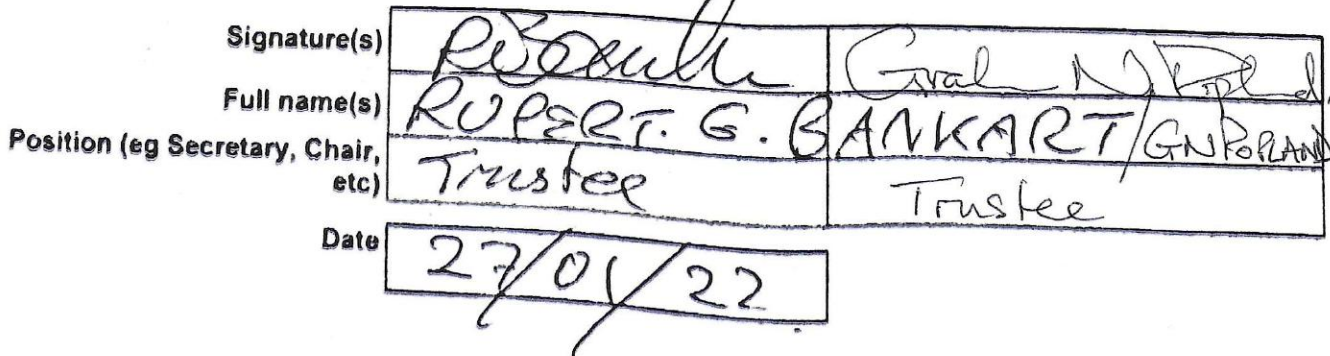 Signature(s) Graham N. Popland
Full name(s) RUPERT. G. BANKART/GN POPLAND
Position (eg Secretary, Chair,
etc) Trustee Trustee
Date 27/01/22